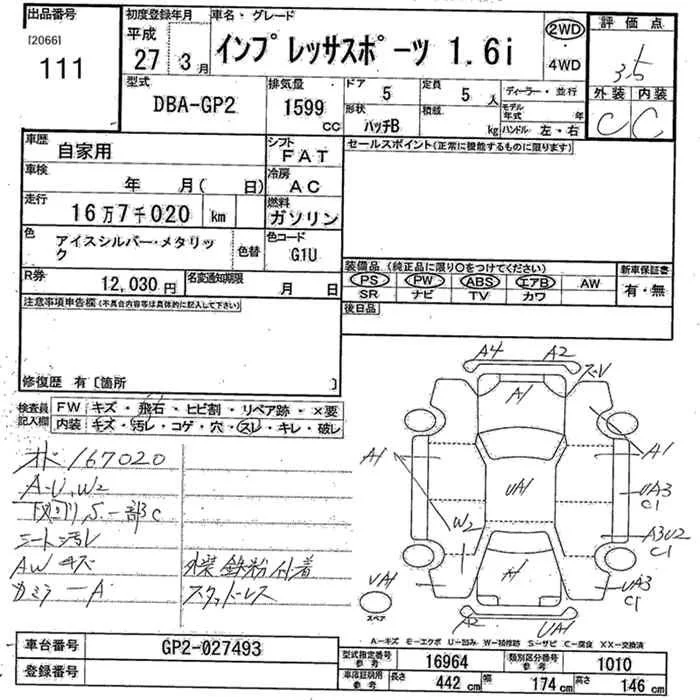 出品番号
[2066]
111
初度登録年月
平成
27年3月
車名・グレード
インプレッサスポーツ 1.6i
2WD
・
4WD
評価点
3.5
外装 内装
C C
型式
DBA-GP2
排気量
1599
CC
ドア
5
定員
5人
形状
ハッチB
積載
kg
ディーラー・並行
モデル年式 年
ハンドル 左・右
車歴
自家用
シフト
FAT
車検
年 月( 日)
冷房
AC
走行
16万7千020 km
燃料
ガソリン
色
アイスシルバー・メタリック
色替
色コード
G1U
R券
12,030円
名変通知期限
月 日
セールスポイント(正常に機能するものに限ります)
装備品(純正品に限り○をつけてください)
PS PW ABS エアB AW
SR ナビ TV カワ
新車保証書
有・無
後日品
注意事項申告欄(不具合内容等は具体的に記入して下さい)
修復歴 有〔箇所 〕
検査員記入欄
FW キズ・飛石・ヒビ割・リペア跡・×要
内装 キズ・汚レ・コゲ・穴・スレ・キレ・破レ
167020
A-U,W2
下回りS.一部C
シート汚レ
AWキズ
外装鉄粉付着
スタッドレス
A4 A2
A1
A1
A1
UA1
UA3
C1
W2
A3U2
C1
A1
UA3
C1
UA1
スペア
A2
UA1
A-キズ M-エクボ U-凹み W-補修跡 S-サビ C-腐食 XX-交換済
車台番号
GP2-027493
登録番号
型式指定番号参考
16964
類別区分番号参考
1010
車庫証明用参考
長さ 442 cm 幅 174 cm 高さ 146 cm